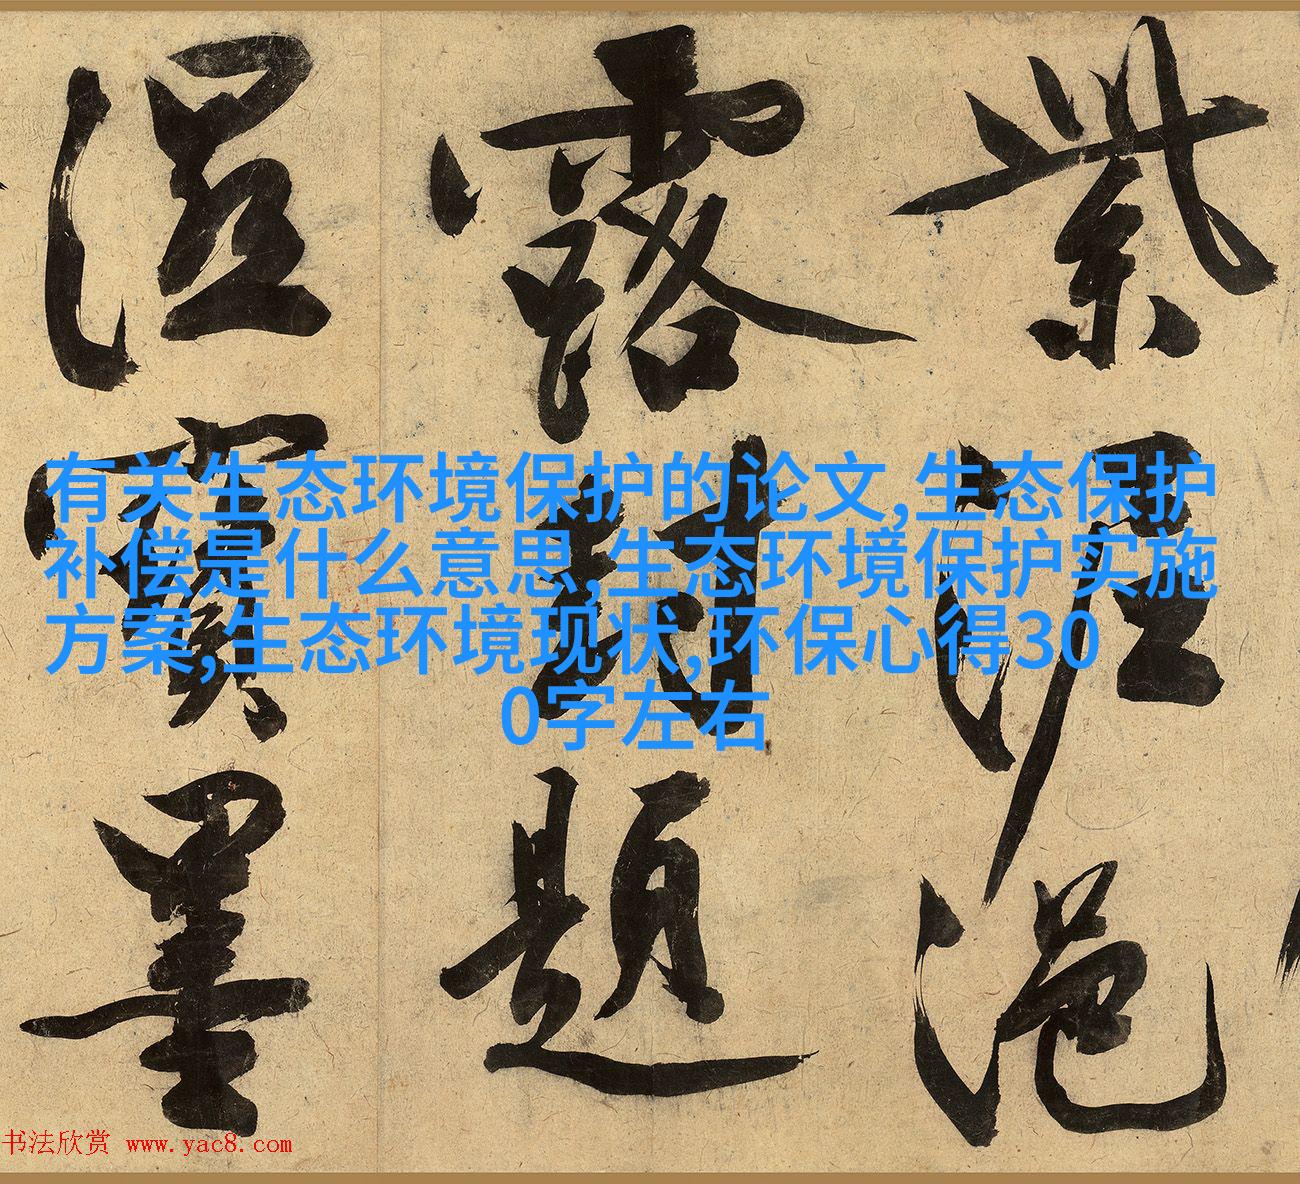 紫泥浥
露封題
湿寶墨
有关生态环境保护的论文,生态保护
补偿是什么意思,生态环境保护实施
方案,生态环境现状,环保心得30
0字左右
书法欣赏 www.yac8.com